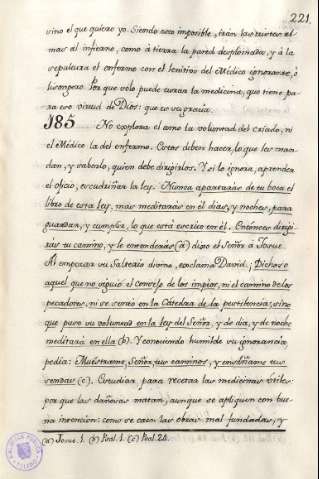 221.
sino el que quiero yo. Siendo eso imposible, irán las suertes el
mas al infierno, como à tierra la pared desplomada, y à la
sepultura el enfermo con el lenitivo del Médico ignorante, ò
lisongero. Por que solo puede curar la medicina, que tiene pa-
ra eso virtud de Dios: que es su gracia.
185 No explora el amo la voluntad del criado, ni
el Médico la del enfermo. Estos deben hacer, lo que les man-
dan, y saberlo, quien debe dirigirlos. Y si lo ignora, aprender
el oficio, escudriñar la ley. Nunca apartarás de tu boca el
libro de esta ley, mas meditarás en èl dias, y noches, para
guardar, y cumplir, lo que està escrito en èl. Entónces dirigi-
rás tu camino, y le entenderás (a) dijo el Señor à Josue.
Al empezar su Salterio divino, exclama David: ¡Dichoso
aquel que no siguió el consejo de los impios, ni el camino de los
pecadores, ni se sentó en la Cátedra de la pestilencia; sino
que puso su voluntad en la ley del Señor, y de dia, y de noche
meditará en ella (b). Y conociendo humilde su ignorancia,
pedia: Muéstrame, Señor, tus caminos, y enséñame tus
sendas (c). Estudiaba para recetar las medicinas útiles:
por que las dañosas matan, aunque se apliquen con bue-
na intencion: como se caen las obras mal fundadas, y
(a) Josue. 1. (b) Psal. 1. (c) Psal. 24.
TOLEDO